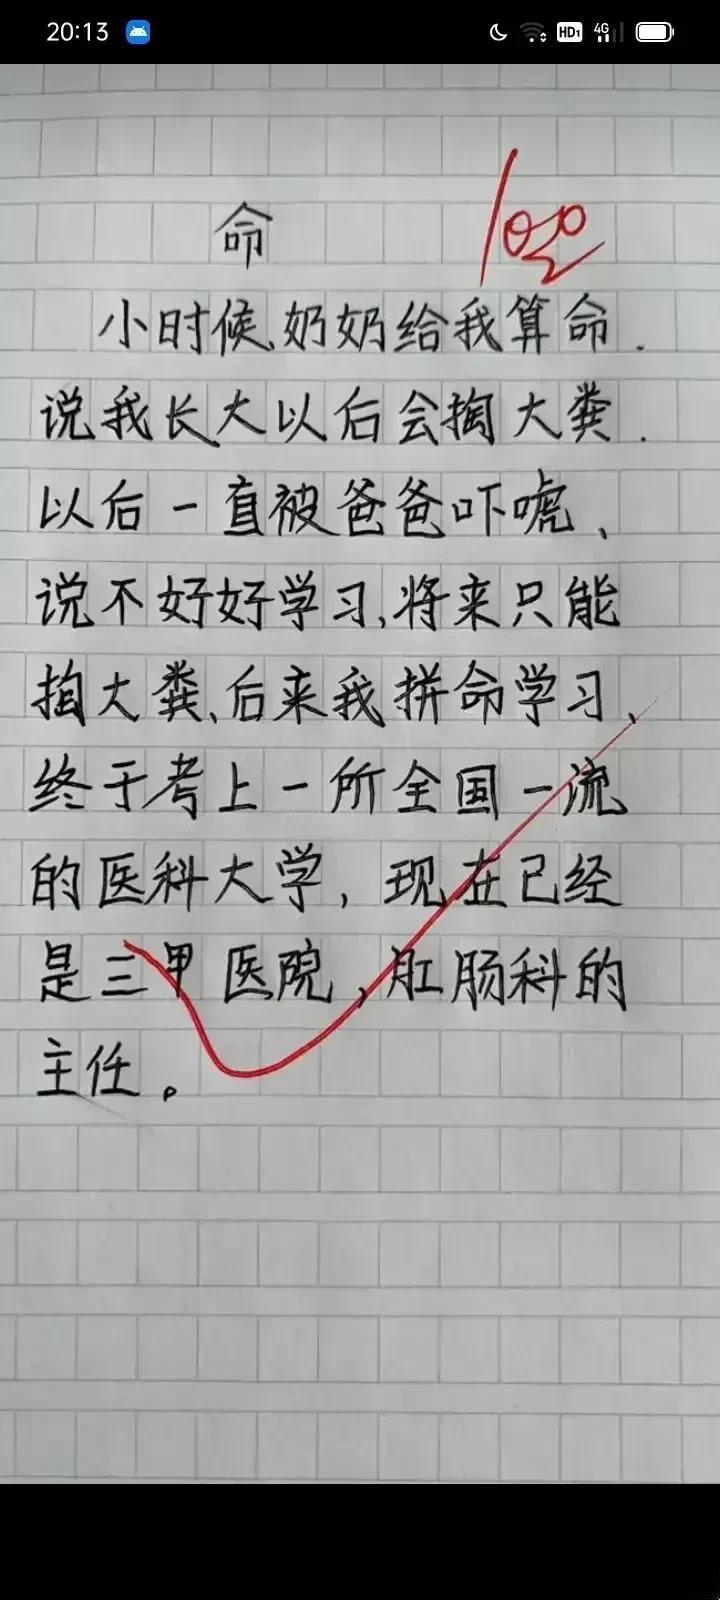 20:13 HD1 4G
命 100
小时候,奶奶给我算命.
说我长大以后会掏大粪.
以后一直被爸爸吓唬、
说不好好学习,将来只能
掏大粪、后来我拼命学习、
终于考上一所全国一流
的医科大学，现在已经
是三甲医院，肛肠科的
主任。